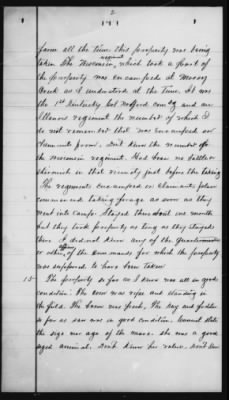 2
farm all the time this property was being
taken The Wisconsin regiment, which took a part of
the property was encamped at Mossy
Creek as I understood at the time. It was
the 1st Kentucky Col Wolford comdg and an
Illinois regiment the number of which I
do not remember that was encamped on
Claimants farm. Dont know the number of
the Wisconsin regiment. Had been no battle or
skirmish in that vicinity just before the taking
The regiments encamped on Claimants farm
commenced taking forage as soon as they
went into camp. Stayed there about one month
but they took property as long as they stayed
there I did not know any of the Quartermasters
or other officers of the commands for which the property
was supposed to have been taken
15 The property so far as I know was all in good
condition. The corn was ripe and standing in
the field. The bacon was fresh, The hay and fodder
so far as I saw was in good condition. Cannot state
the size nor age of the mare. She was a good
aged animal. Dont know her value. Dont know